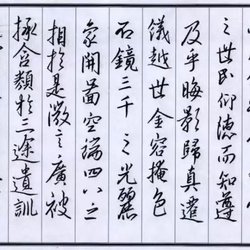 之世民仰德而知遵
及乎晦影歸真遷
儀越世金容掩色
不鏡三千之光麗
象開圖空端四八之
相於是微言廣被
拯含類於三途遺訓